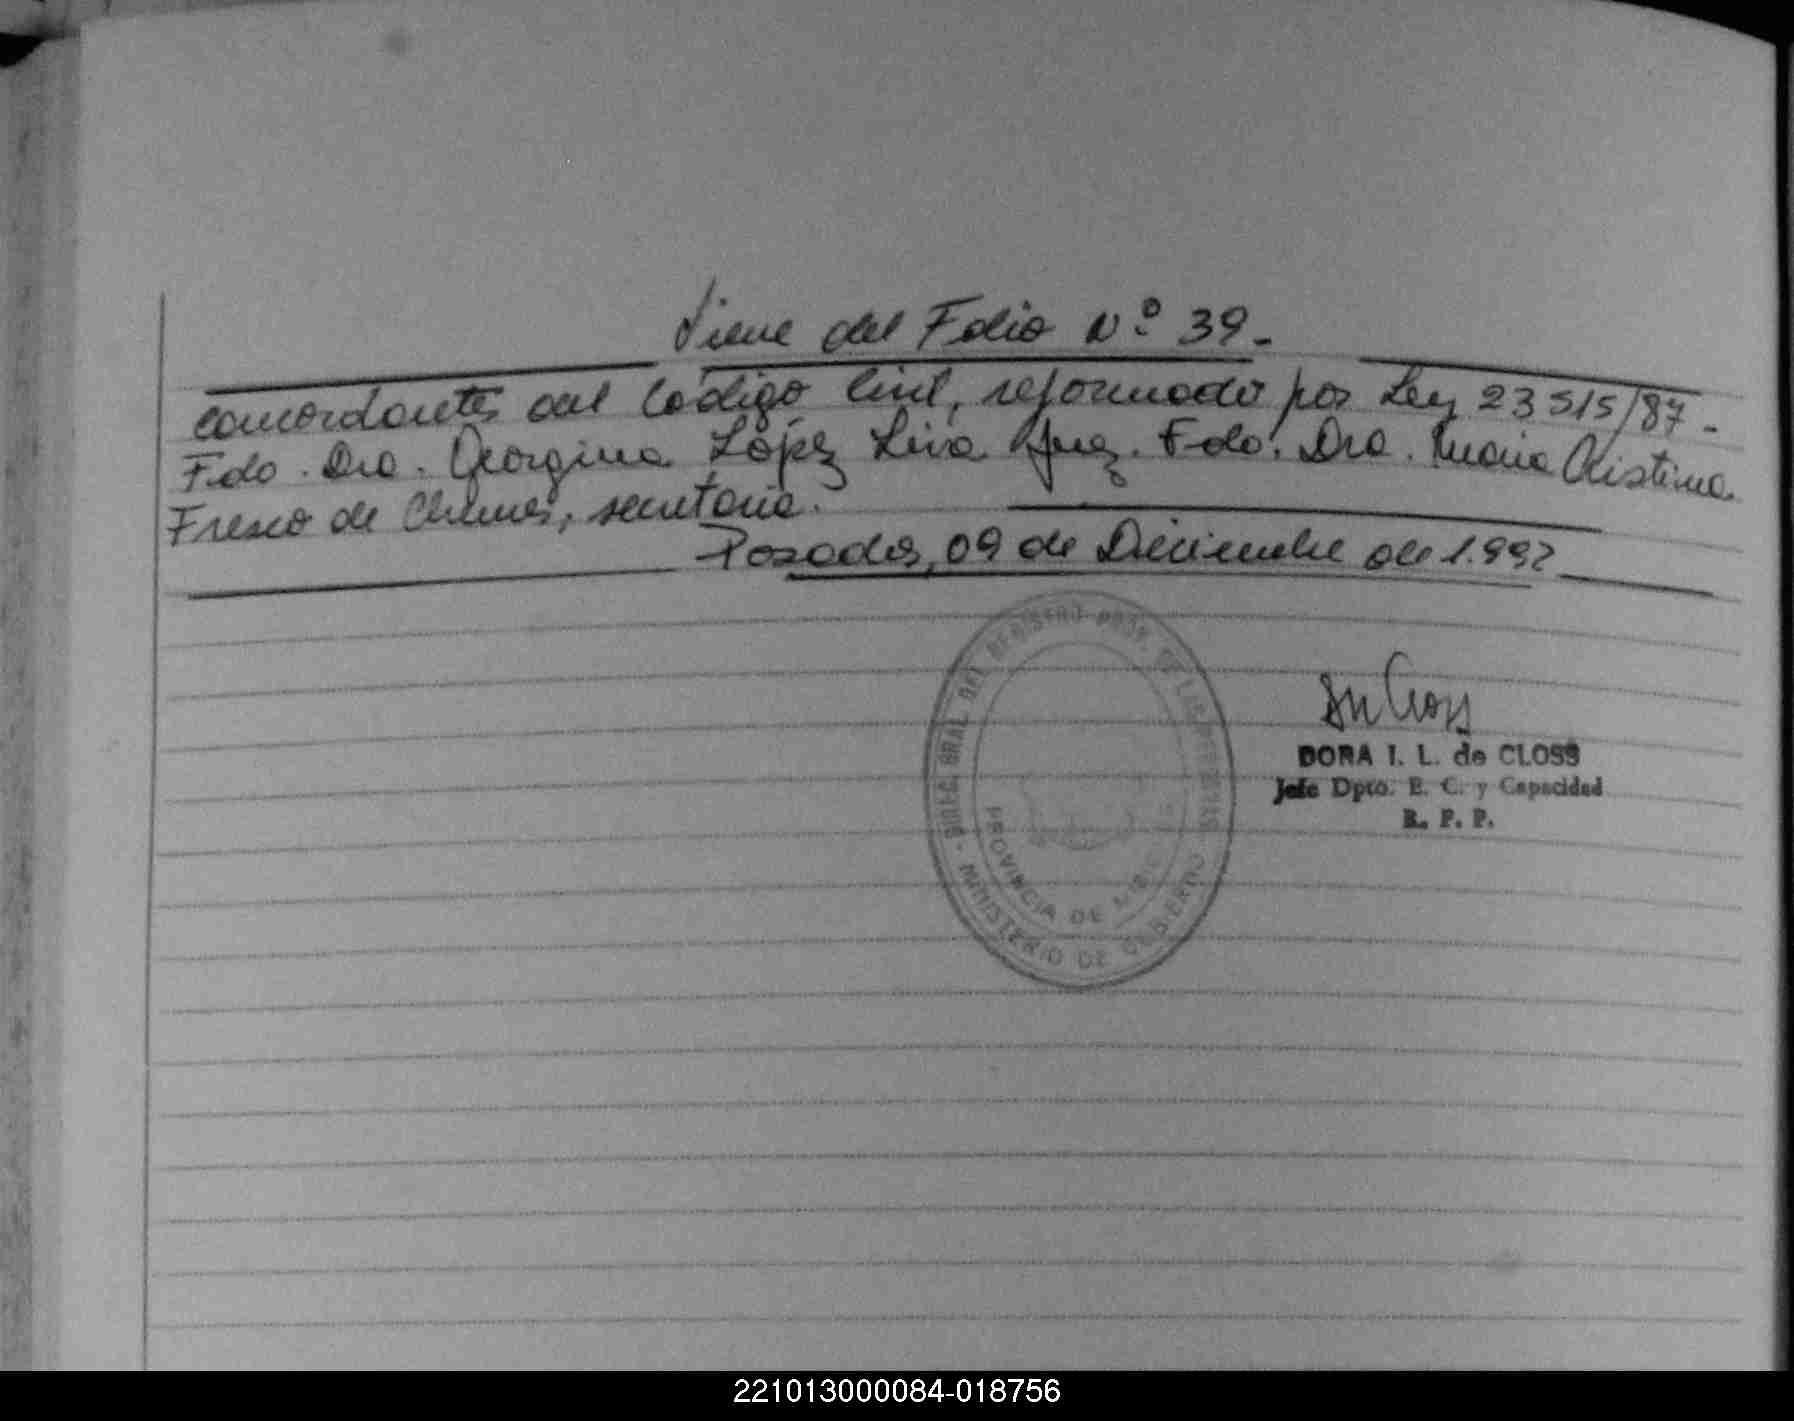 Viene del Folio Nº 39.-
concordantes del Código Civil, reformado por Ley 23515/87.-
Fdo. Dra. Georgina López Liva Juez. Fdo. Dra. María Cristina
Fresco de, secretaria.
Posadas, 09 de Diciembre de 1.992
DIREC. GRAL. DEL REGISTRO PROV. DE LAS PERSONAS
PROVINCIA DE
MINISTERIO DE GOBIERNO
DORA I. L. de CLOSS
Jefe Dpto. E. C. y Capacidad
R. P. P.
221013000084-018756